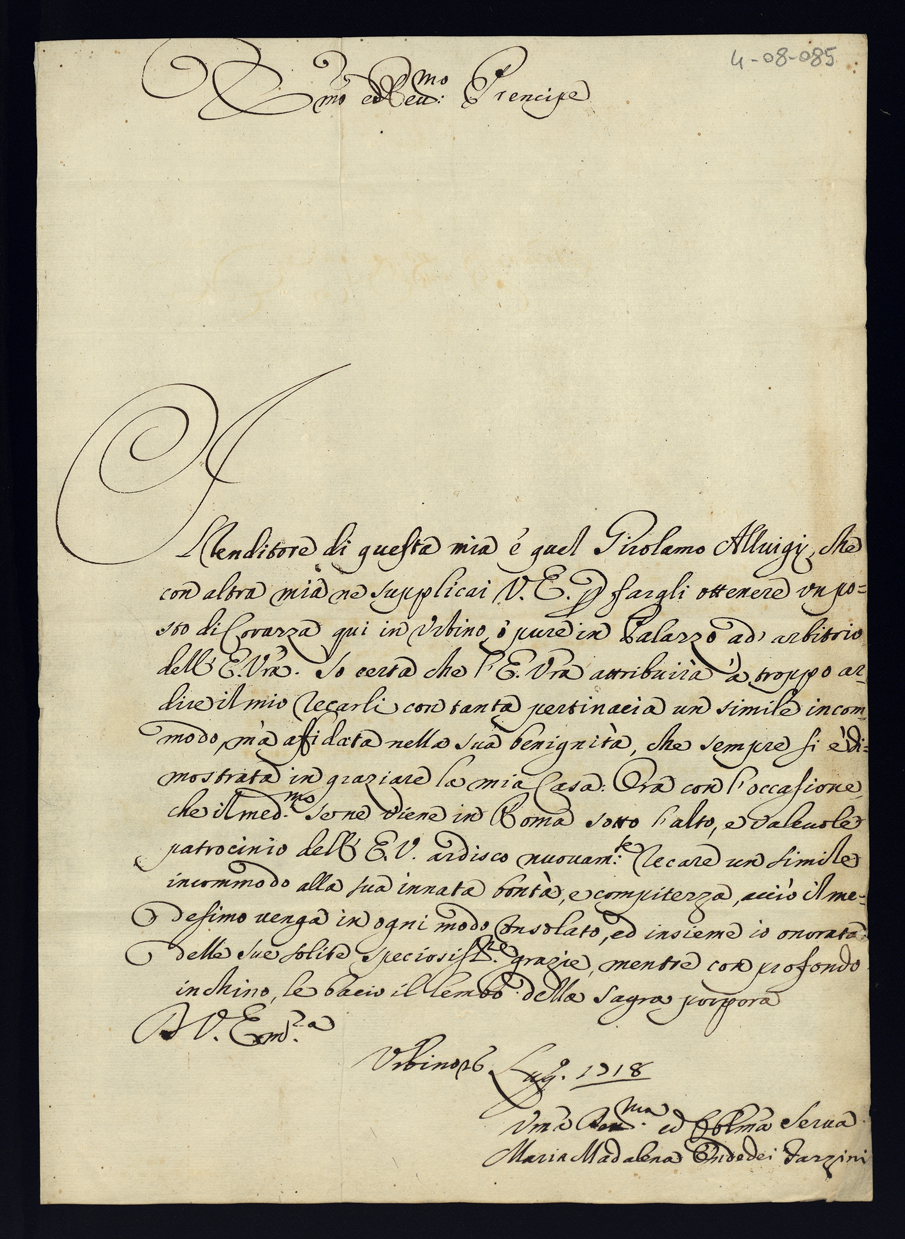 4-08-085
Emo ed Reu:mo Prencipe
Il Renditore di questa mia è quel Girolamo Alluigi, che
con altra mia ne supplicai V. E. p fargli ottenere un po=
sto di Corazza qui in Urbino, ò pure in Palazzo ad' arbitrio
dell' E. Vra. So certa che l'E. Vra attribuirà à troppo ar=
dire il mio recarli con tanta pertinacia un simile incom=
modo, mà affidata nella sua benignità, che sempre si è di=
mostrata in graziare la mia Casa: Ora con l'occasione
che il med:mo se ne viene in Roma sotto l'alto, e valeuole
patrocinio dell' E. V. ardisco nuouam:te recare un simile
incommodo alla sua innata bontà, e compitezza, acciò il me=
desimo venga in ogni modo consolato, ed insieme io onorata
delle sue solite speciosiss:me grazie, mentre con profondo
inchino, le bacio il lembo della sagra porpora
D V. Em:za
Urbino 26 Lug:o 1718
Vma Deu:ma ed Obblma Serua
Maria Madalena Ondedei Tarzini